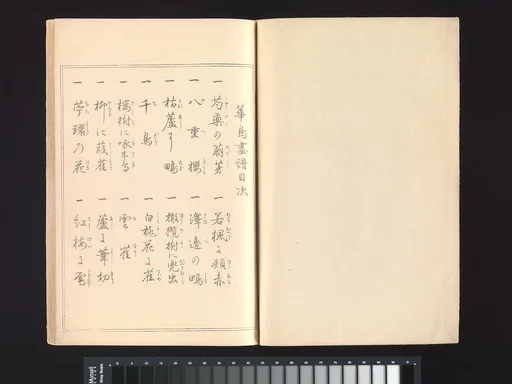 華鳥画譜目次
一 芍薬の萠芽
一 若楓に頬赤
一 八重櫻
一 澤邉の鴫
一 枯蘆に鴫
一 橄欖樹に兜虫
一 千鳥
一 白桃花に雀
一 樹に啄木鳥
一 雲雀
一 柳に葭雀
一 蘆に葦切
一 苧環の花
一 紅梅に鴬